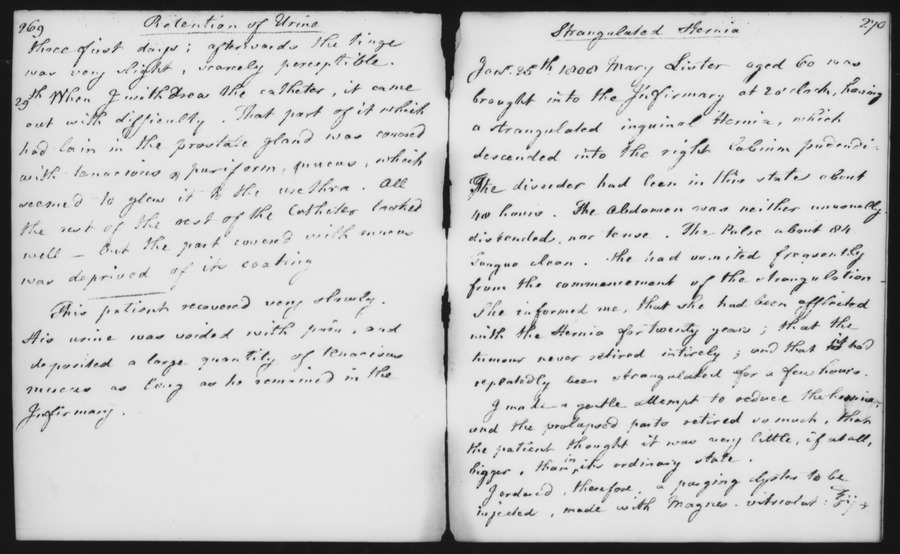 269
Retention of Urine
three first days; afterwards the tinge
was very slight, scarcely perceptible.
29th When I withdrew the catheter, it came
out with difficulty. That part of it which
had lain in the prostate gland was covered
with tenacious & puriform, mucus, which
seemed to glew it to the urethra. All
the rest of the rest of the Catheter looked
well – but the part covered with mucus
was deprived of its coating
This patient recovered very slowly.
His urine was voided with pain, and
deposited a large quantity of tenacious
mucus as long as he remained in the
Infirmary.
270
Strangulated Hernia
Jany. 25th 1808 Mary Lister aged 60 was
brought into the Infirmary at 2 o'clock, having
a strangulated inguinal Hernia, which
descended into the right Labium pudendi.
The disorder had been in this state about
48 hours. The Abdomen was neither unusually
distended, nor tense. The Pulse about 84.
Tongue clean. She had vomited frequently
from the commencement of the strangulation
She informed me, that she had been afflicted
with the Hernia for twenty years; that the
tumour never retired intirely; and that it had
repeatedly been strangulated for a few hours.
I made a gentle attempt to reduce the hernia,
and the prolapsed parts retired so much, that
the patient thought it was very little, if at all,
bigger, than in its ordinary state.
I ordered, therefore, a purging clyster to be
injected, made with Magnes. vitriolat: ℥ij